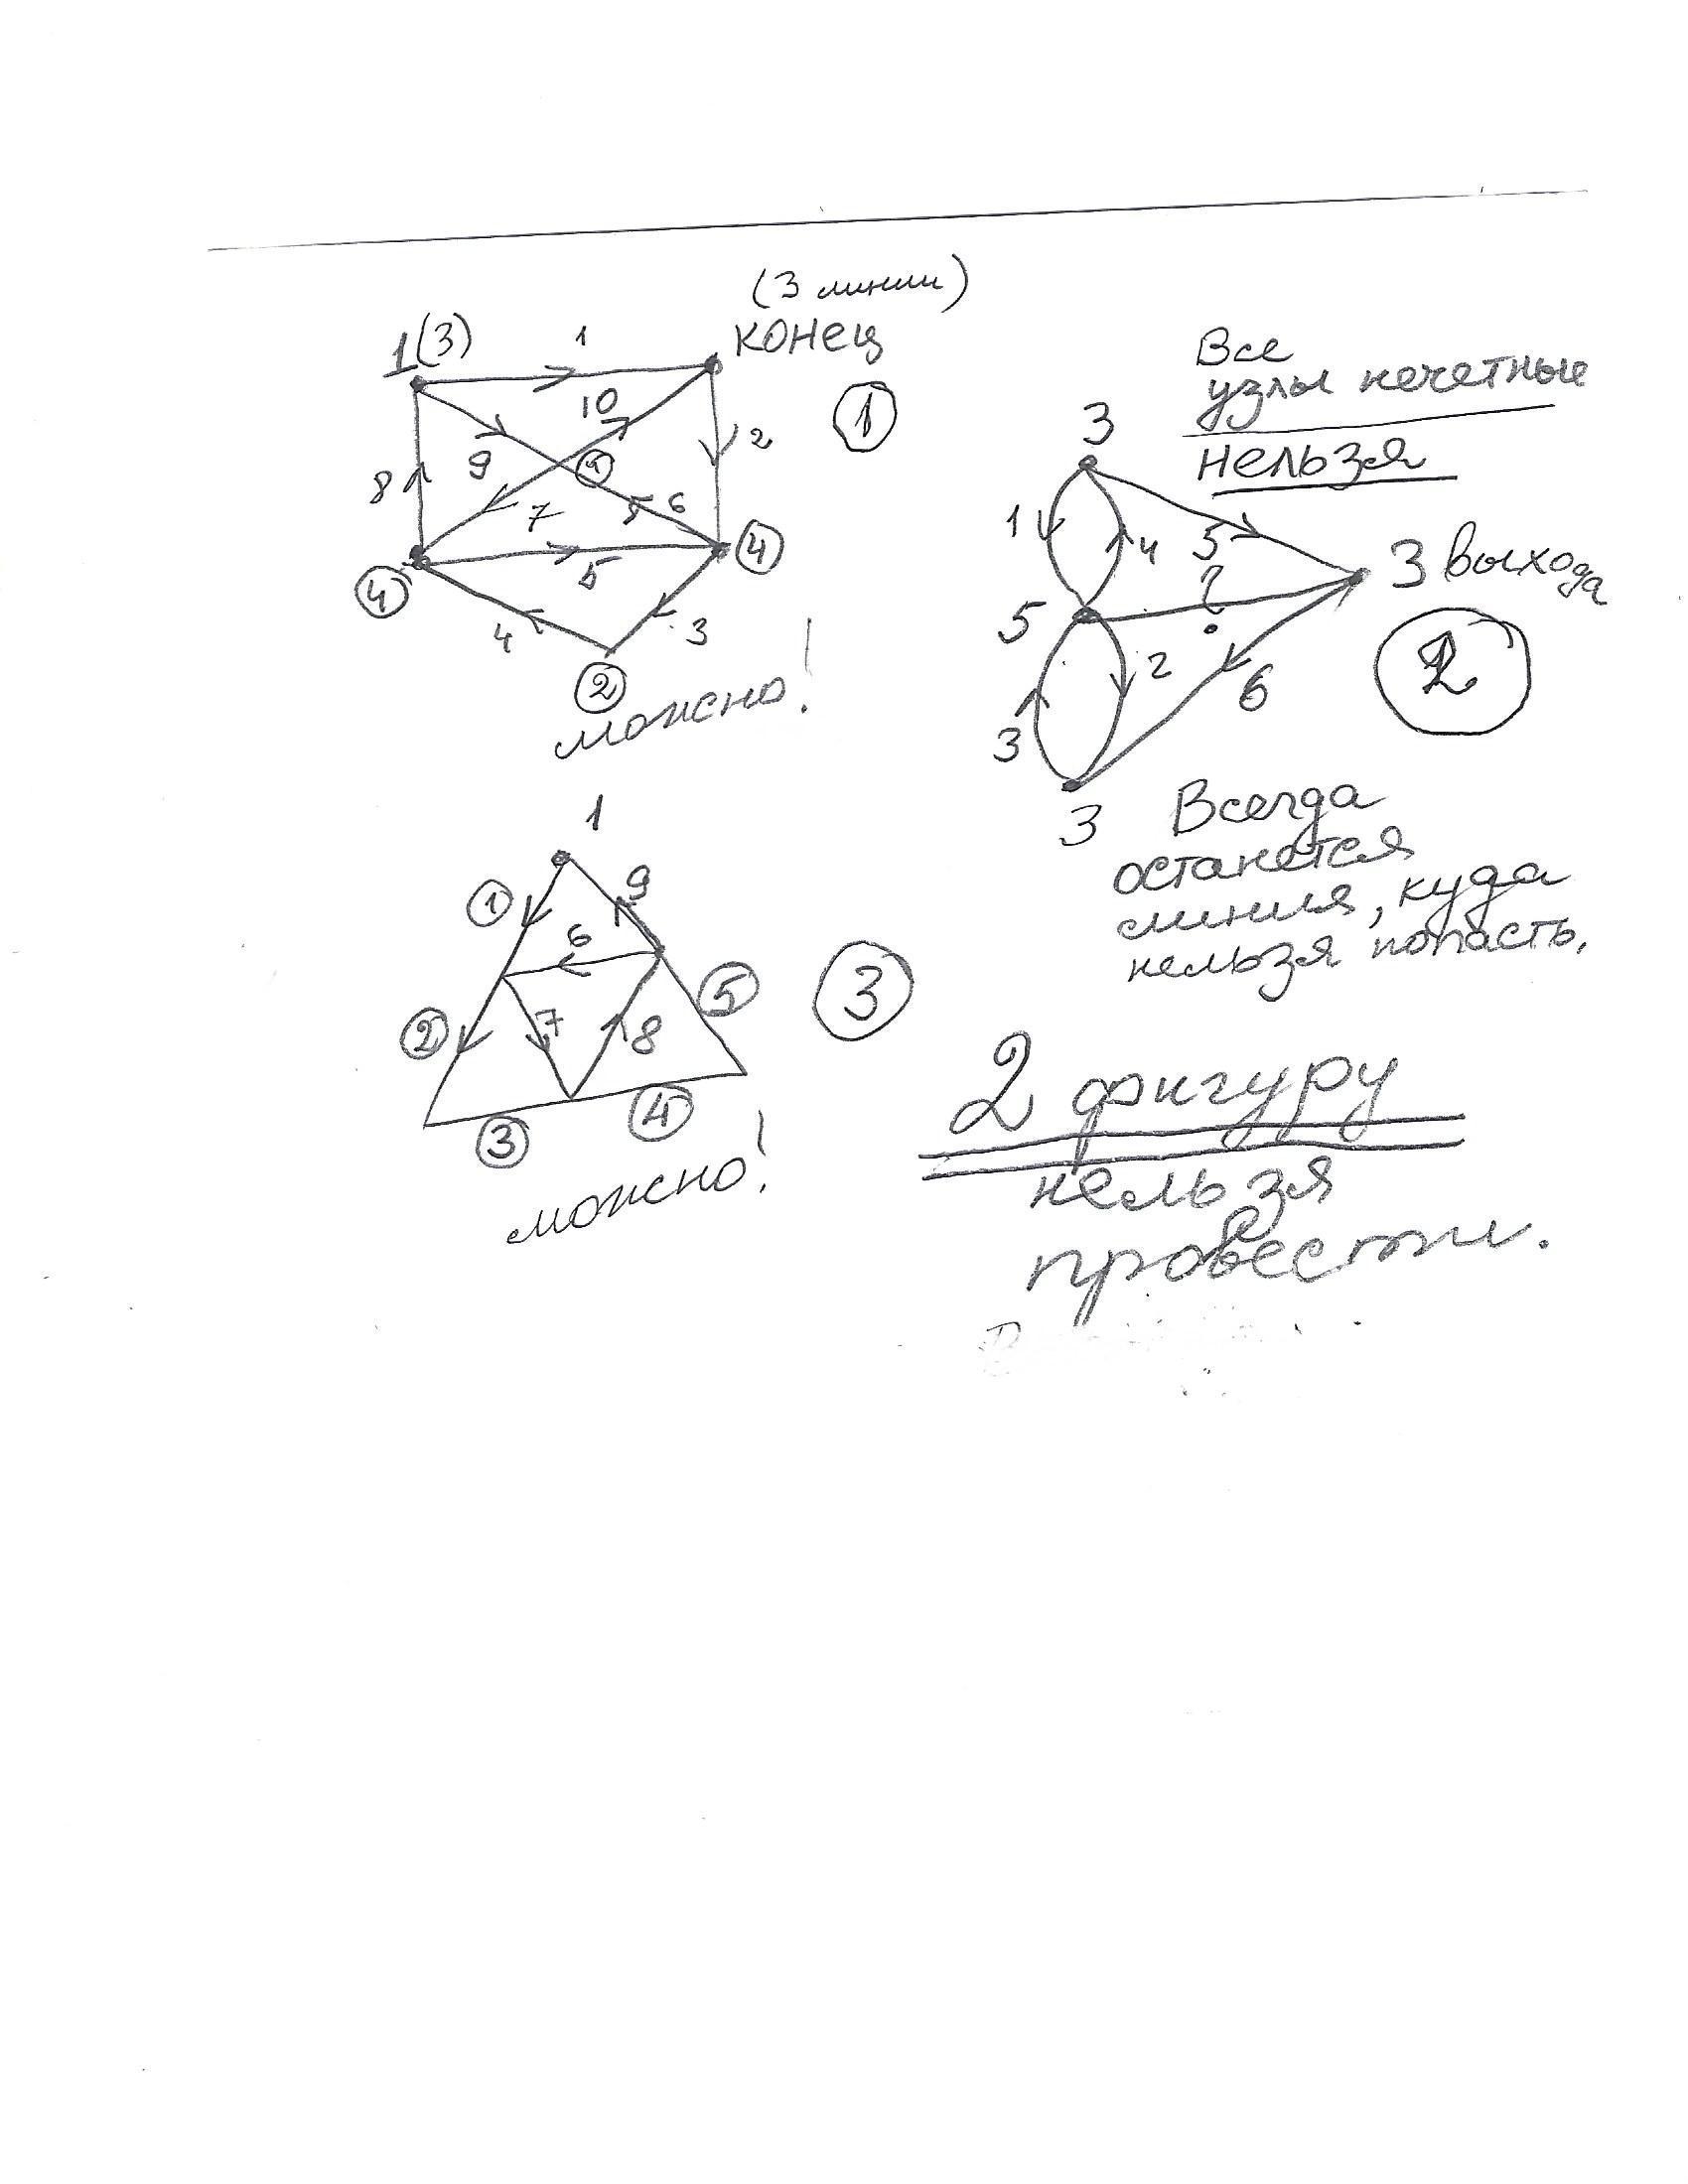 (3 линии)
1(3) 1 конец
10 2
9 4
8 7 6
5 4
4
4 3
2
можно!
1
Все
узлы нечетные
нельзя
3
1 4 5
3 выхода
5 ?
2
3 6
3
2
Всегда
останется
линия, куда
нельзя попасть.
1
1 9
6
5
2 7 8
4
3
можно!
3
2 фигуру
нельзя
провести.